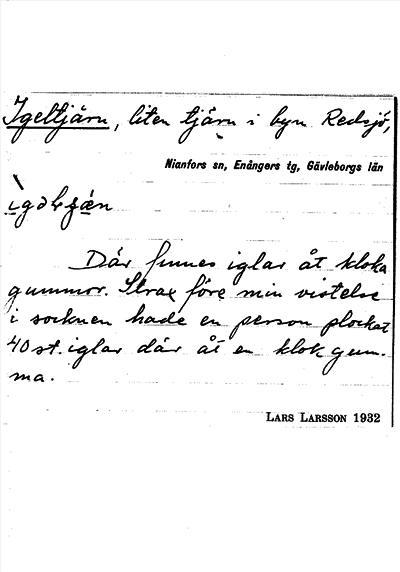 Igeltjärn, liten tjärn i byn Redsjö,
Nianfors sn, Enångers tg, Gävleborgs län
Där funnes iglar åt kloka
gummor. Strax före min vistelse
i socknen hade en person plockat
40 st. iglar där åt en klok gum-
ma.
LARS LARSSON 1932